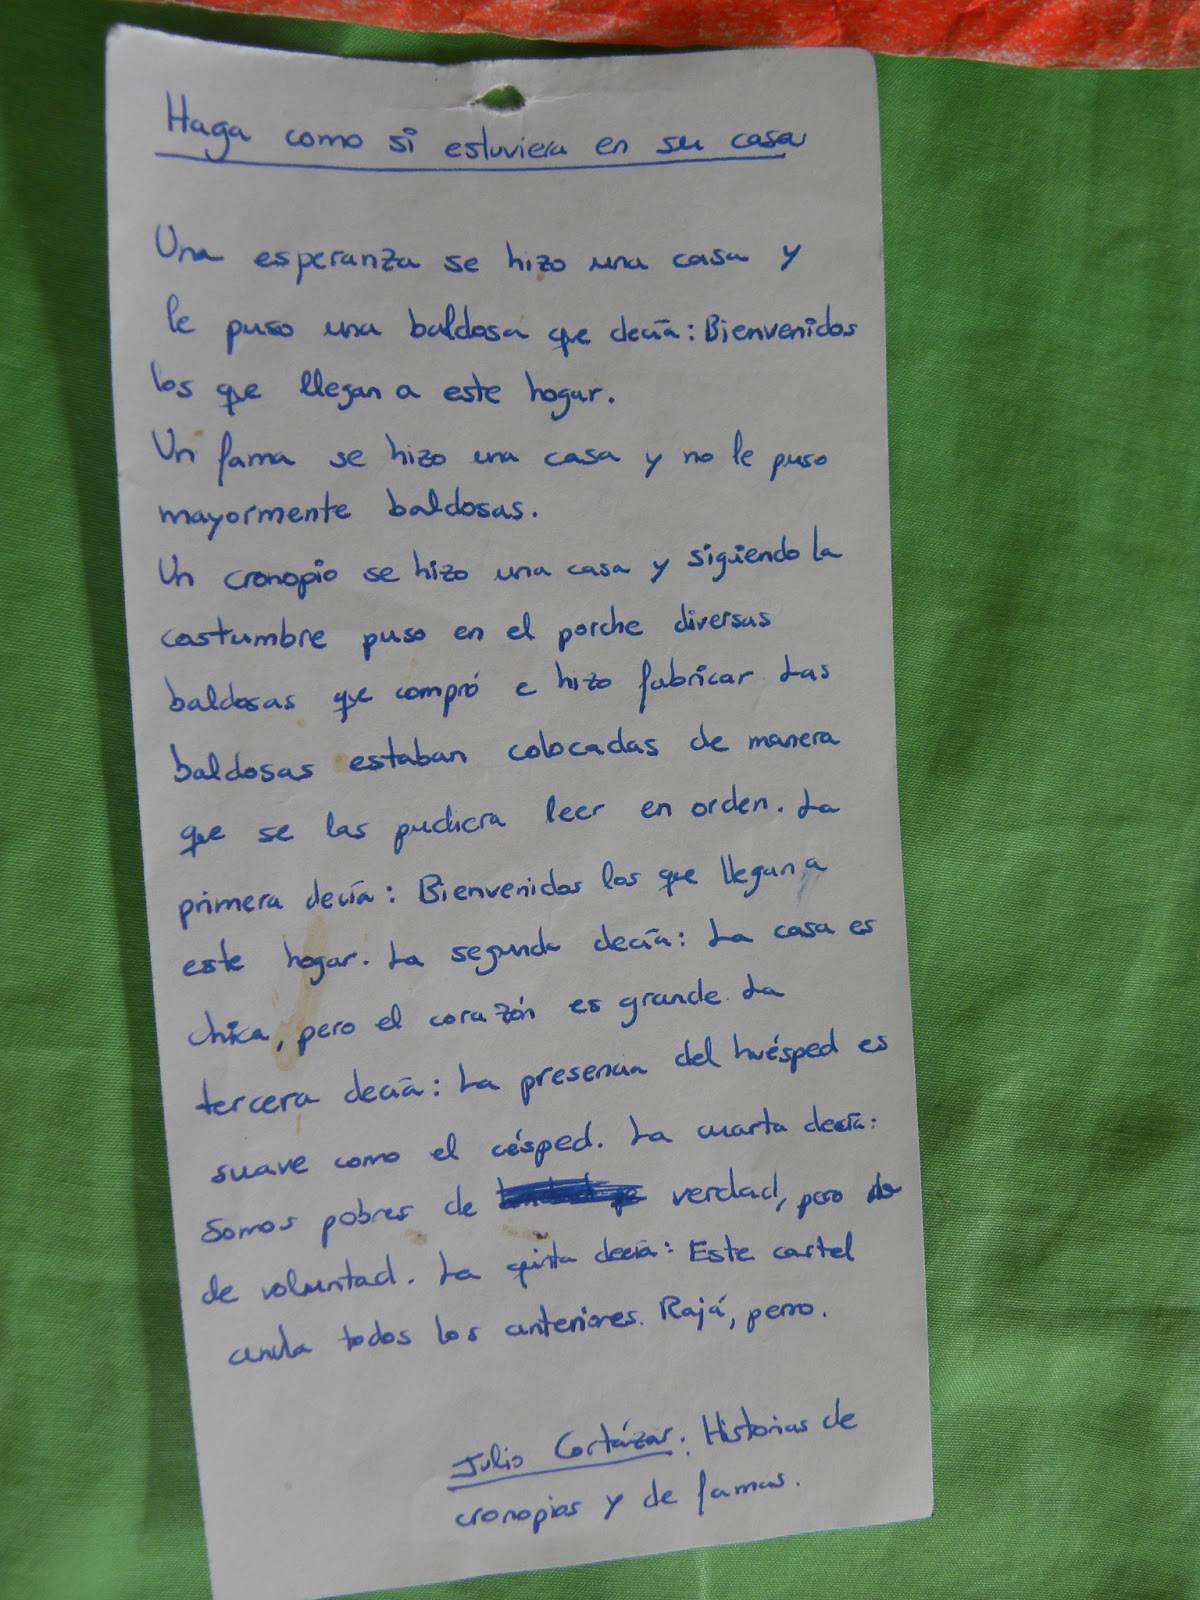 Haga como si estuviera en su casa
Una esperanza se hizo una casa y
le puso una baldosa que decía: Bienvenidos
los que llegan a este hogar.
Un fama se hizo una casa y no le puso
mayormente baldosas.
Un cronopio se hizo una casa y siguiendo la
costumbre puso en el porche diversas
baldosas que compró e hizo fabricar. Las
baldosas estaban colocadas de manera
que se las pudiera leer en orden. La
primera decía: Bienvenidos los que llegan a
este hogar. La segunda decía: La casa es
chica, pero el corazón es grande. La
tercera decía: La presencia del huésped es
suave como el césped. La cuarta decía:
Somos pobres de verdad, pero
de voluntad. La quinta decía: Este cartel
anula todos los anteriores. Rajá, perro.
Julio Cortázar. Historias de
cronopios y de famas.